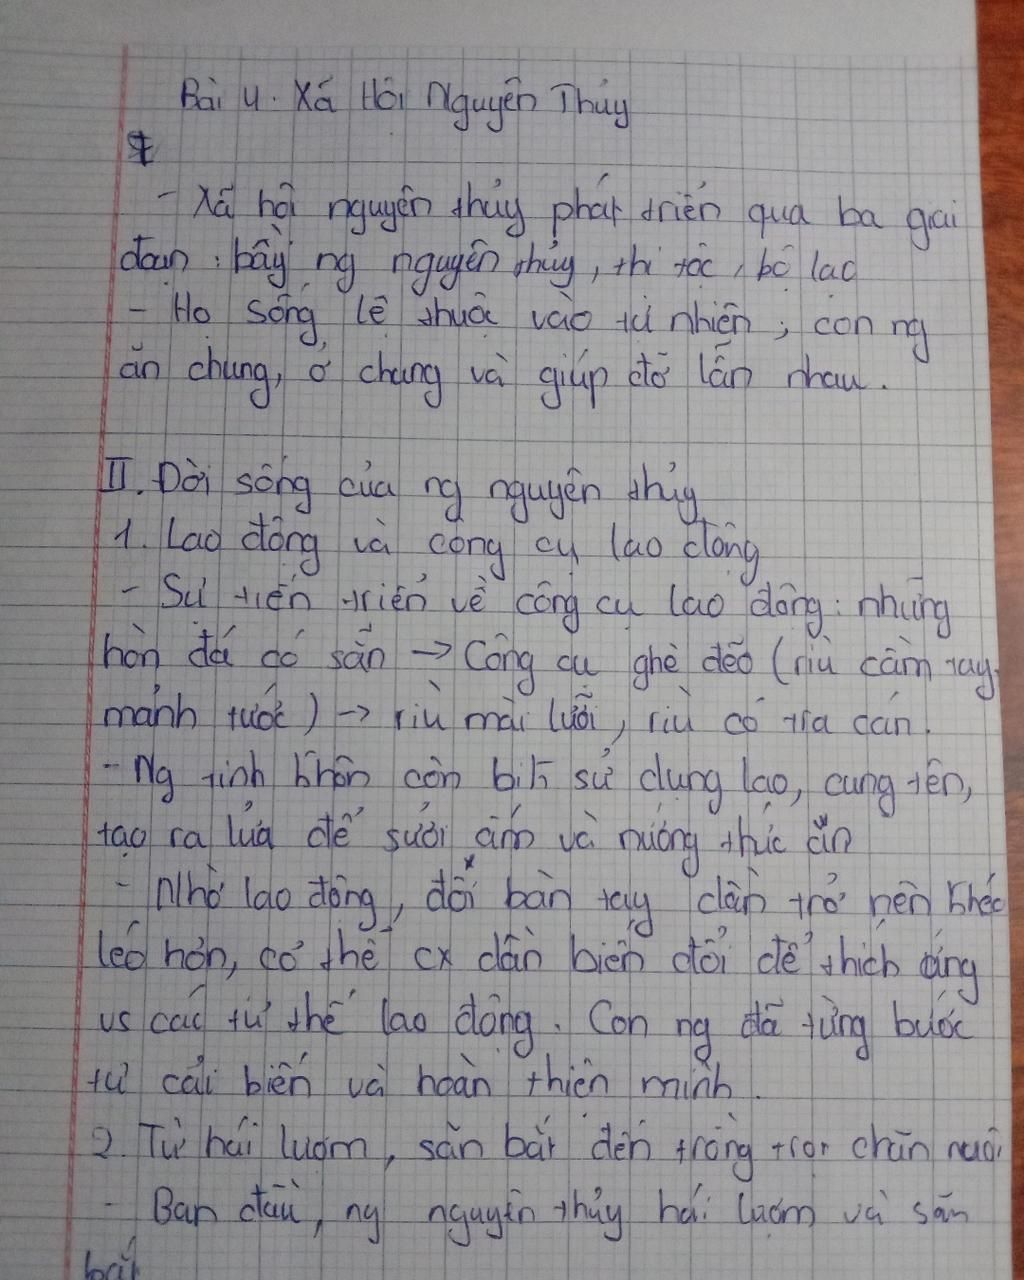 Bài 4. Xã Hội Nguyên Thủy
I
- Xã hội nguyên thủy phát triển qua ba giai
đoạn: bầy ng nguyên thủy, thị tộc, bộ lạc
- Họ sống lệ thuộc vào tự nhiên; con ng
ăn chung, ở chung và giúp đỡ lẫn nhau.
II. Đời sống của ng nguyên thủy
1. Lao động và công cụ lao động
- Sự tiến triển về công cụ lao động: những
hòn đá có sẵn → Công cụ ghè đẽo (rìu cầm tay,
mảnh tước) → rìu mài lưỡi, rìu có tra cán.
- Ng tinh khôn còn bít sử dụng lao, cung tên,
tạo ra lửa để sưởi ấm và nướng thức ăn
- Nhờ lao động, đôi bàn tay dần trở nên khéo
léo hơn, cơ thể cx dần biến đổi để thích ứng
vs các tư thế lao động. Con ng đã từng bước
tự cải biến và hoàn thiện mình.
2. Từ hái lượm, săn bắt đến trồng trọt chăn nuôi
- Ban đầu, ng nguyên thủy hái lượm và săn
bắt